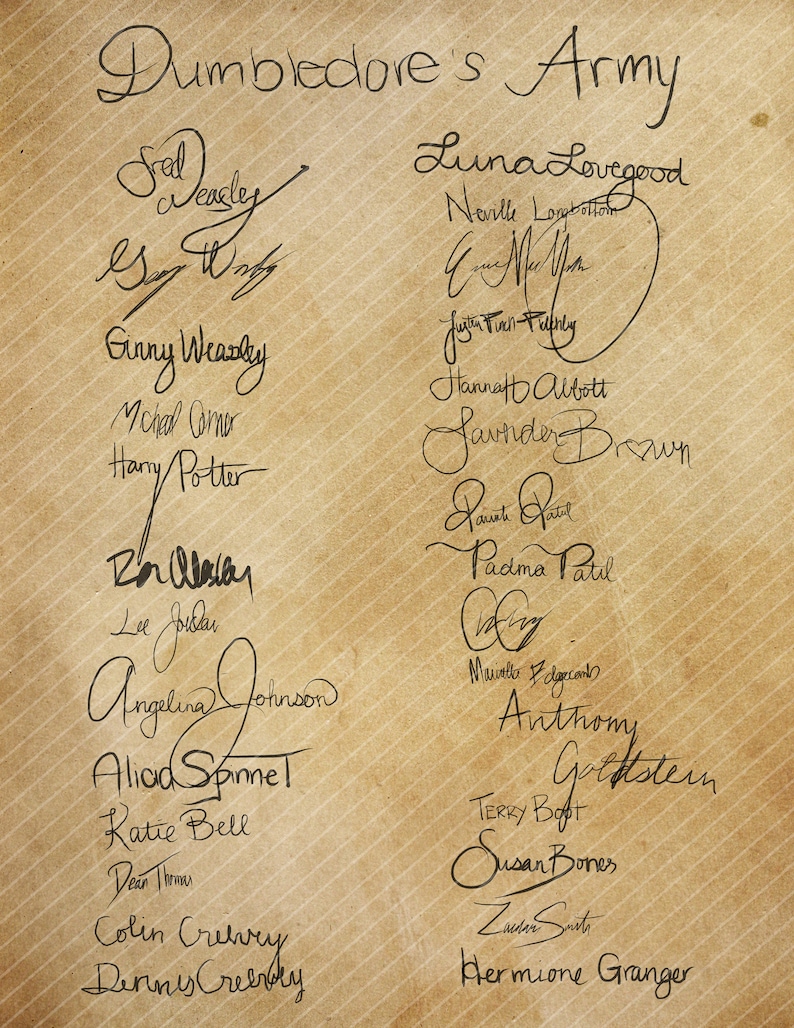 Dumbledore's Army
Fred
Weasley
Ginny Weasley
Micheal Corner
Harry Potter
Ron Weasley
Lee Jordan
Angelina Johnson
Alicia Spinnet
Katie Bell
Dean Thomas
Colin Creevey
Dennis Creevey
Luna Lovegood
Neville Longbottom
Justin Finch-Fletchley
Hannah Abbott
Lavender Brown
Parvati Patil
Padma Patil
Marietta Edgecomb
Anthony
Goldstein
Terry Boot
Susan Bones
Smith
Hermione Granger